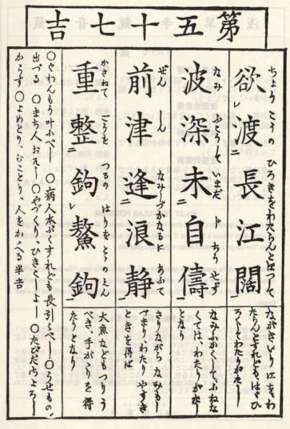 第五十七吉
ちょうこうの ひろきをわたらんとほつして
欲渡長江闊
なみふこうして いまだ ともありやす
波深未自儔
ぜんしん なみしづかなるにあふて
前津逢浪静
かさねて ごうを つるの はりをとゝのえん
重整鉤鰲鉤
たらんとすれどもはゞひ
ろくしてわたりがたし
なみふかくしてふねな
くては、わたりがたき
となり
さりながらなみもし
づまり、わたりやすき
ときを得ば
大魚などもつりう
べき、手がゝりを得
たりとなり
○ぐわんもう叶ふべし ○病人本ぷくすれども長引くべし ○うせもの
出づる ○まち人おそし ○やづくり、ひきこしよし ○たびだちよろし
○よめとり、むことり、人をかゝへる半吉